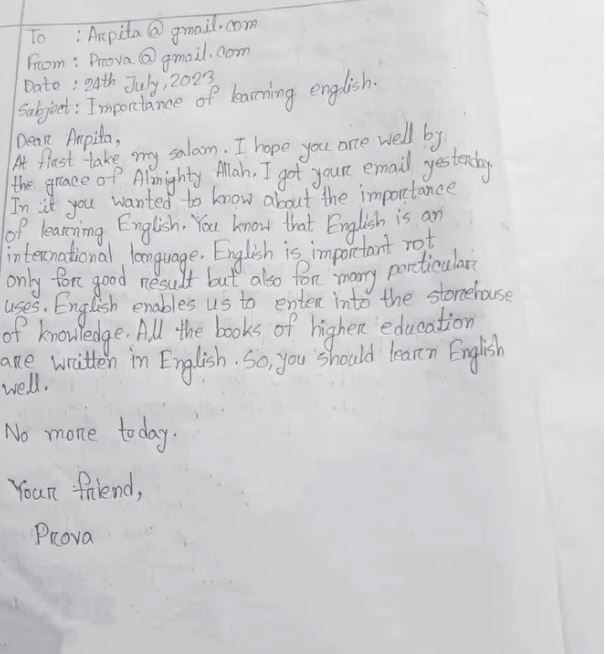 To : Arpita @ gmail.com
From : Prova @ gmail.com
Date : 24th July, 2023
Subject : Importance of learning english.
Dear Arpita,
At first take my salam. I hope you are well by
the grace of Almighty Allah. I got your email yesterday.
In it you wanted to know about the importance
of learning English. You know that English is an
international language. English is important not
only for good result but also for many particular
uses. English enables us to enter into the storehouse
of knowledge. All the books of higher education
are written in English. So, you should learn English
well.
No more today.
Your friend,
Prova